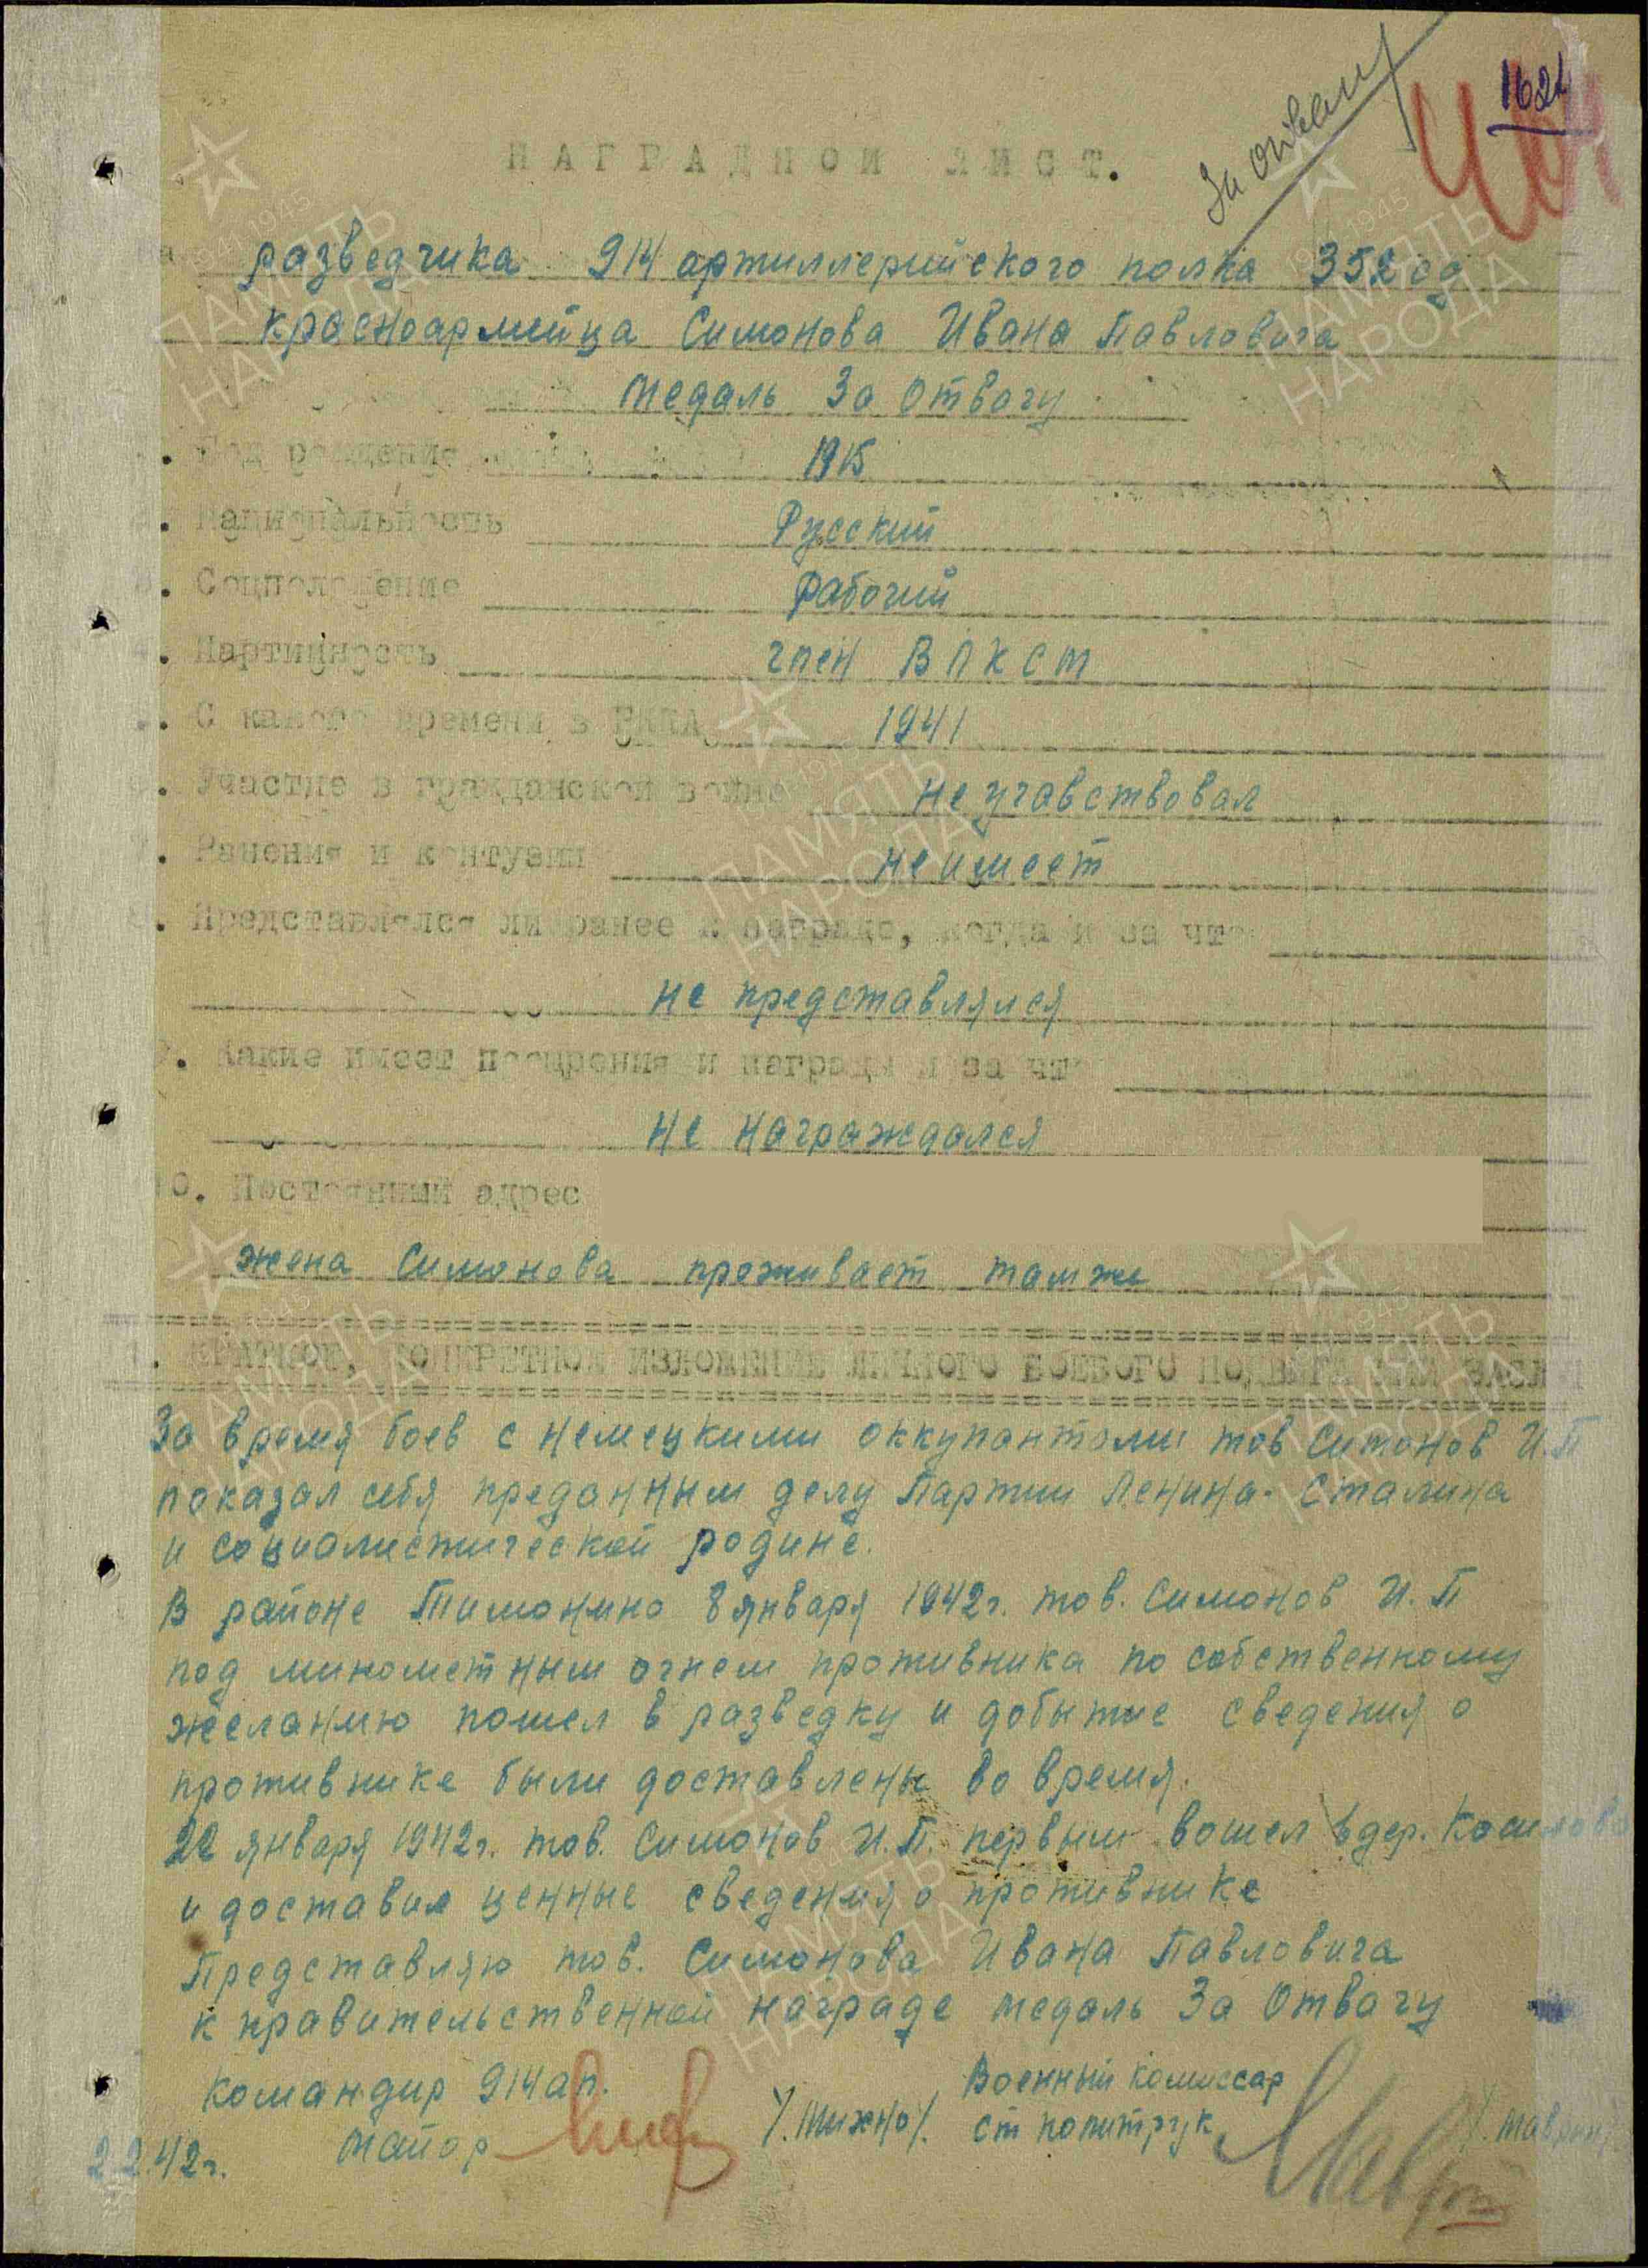 За отвагу
162
НАГРАДНОЙ ЛИСТ.
разведчика 914 артиллерийского полка 352 сд
красноармейца Симонова Ивана Павловича
медаль За Отвагу
. Год рождения 1915
. Национальность Русский
. Соцположение Рабочий
. Партийность член ВЛКСМ
. С какого времени в РККА 1941
. Участие в гражданской войне не учавствовал
. Ранения и контузии не имеет
. Представлялся ли ранее к награде, когда и за что
не представлялся
. Какие имеет поощрения и награды и за что
не награждался
10. Постоянный адрес
жена Симонова проживает тамже
КРАТКОЕ, КОНКРЕТНОЕ ИЗЛОЖЕНИЕ ЛИЧНОГО БОЕВОГО ПОДВИГА ИЛИ ЗАСЛ
За время боев с немецкими оккупантами тов Симонов И.П
показал себя преданным делу Партии Ленина-Сталина
и социалистической родине.
В районе Тимонино 8 января 1942г. тов. Симонов И.П
под минометным огнем противника по собственному
желанию пошел в разведку и добытые сведения о
противнике были доставлены во время.
22 января 1942г. тов. Симонов И.П. первым вошел в дер.
и доставил ценные сведения о противнике
Представляю тов. Симонова Ивана Павловича
к правительственной награде медаль За Отвагу
Командир 914 ап. Военный комиссар
майор /.Михно/. ст политрук
2.2.42г.
1941 1945
ПАМЯТЬ
НАРОДА